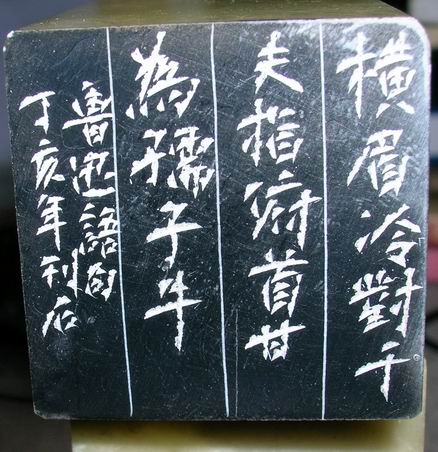 橫眉冷對千
夫指府首甘
為孺子牛
魯迅語句
丁亥年刊石